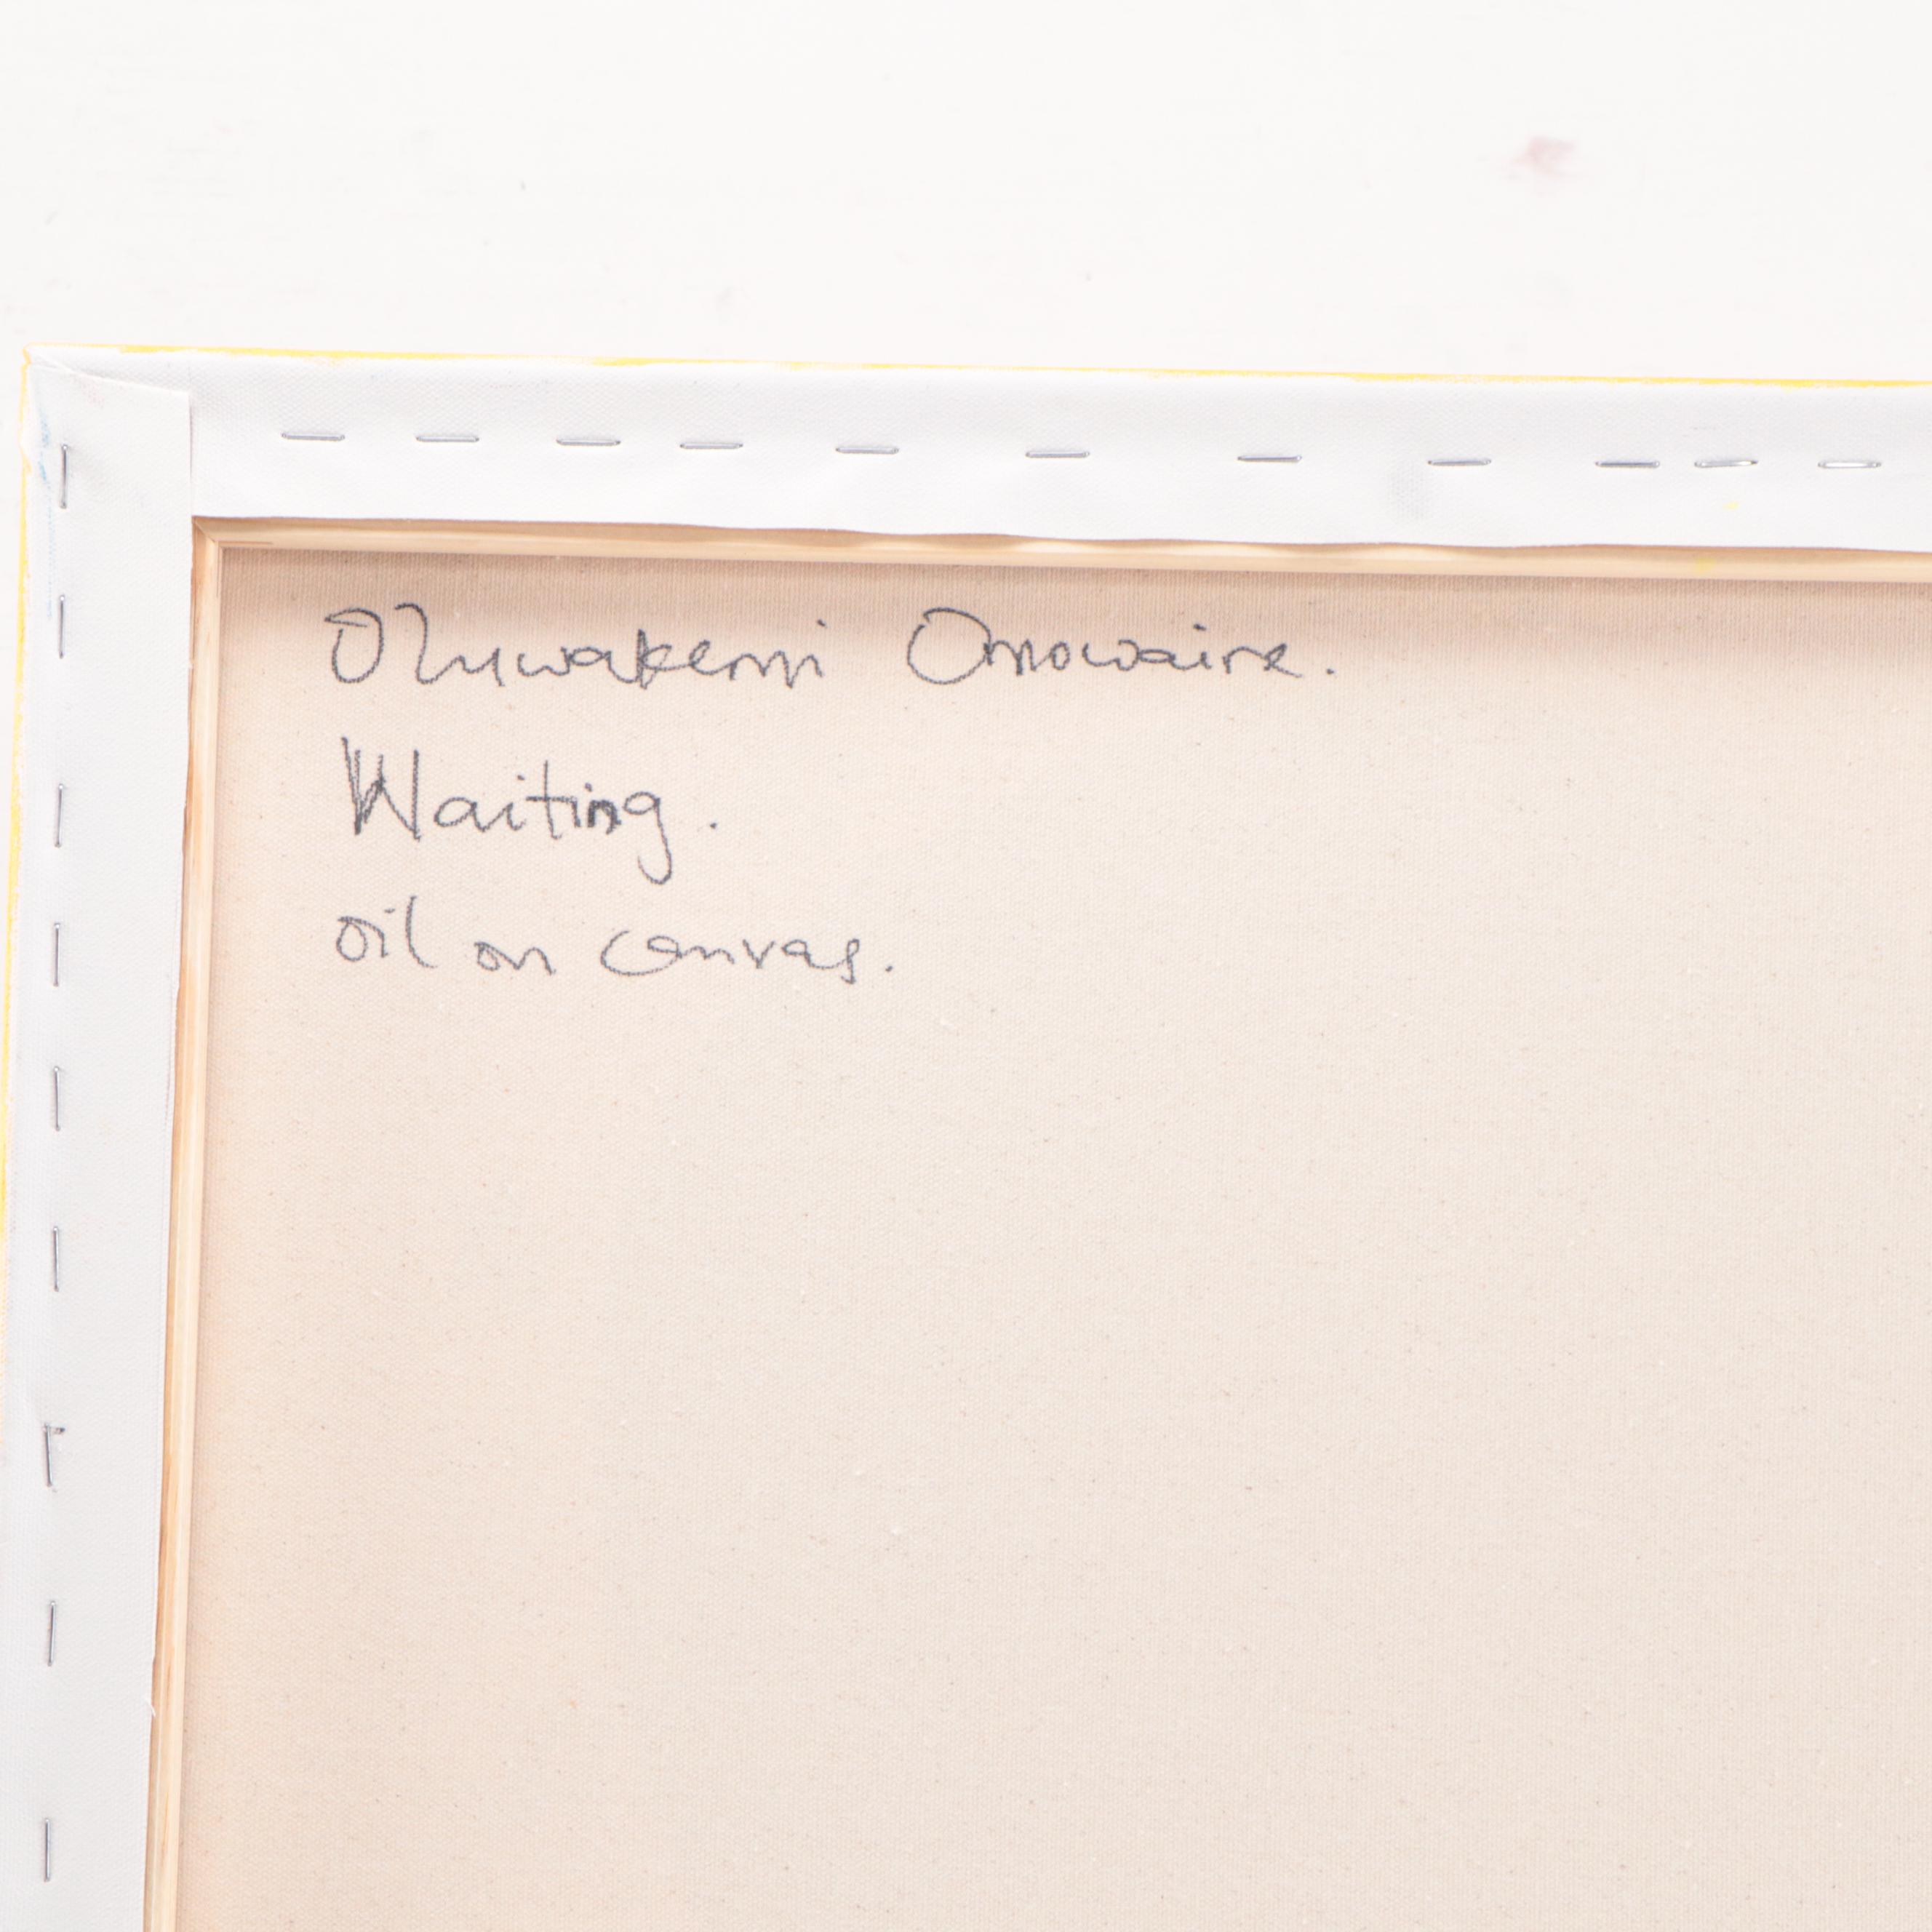 Oluwakemi Omowaire.
Waiting.
oil on canvas.